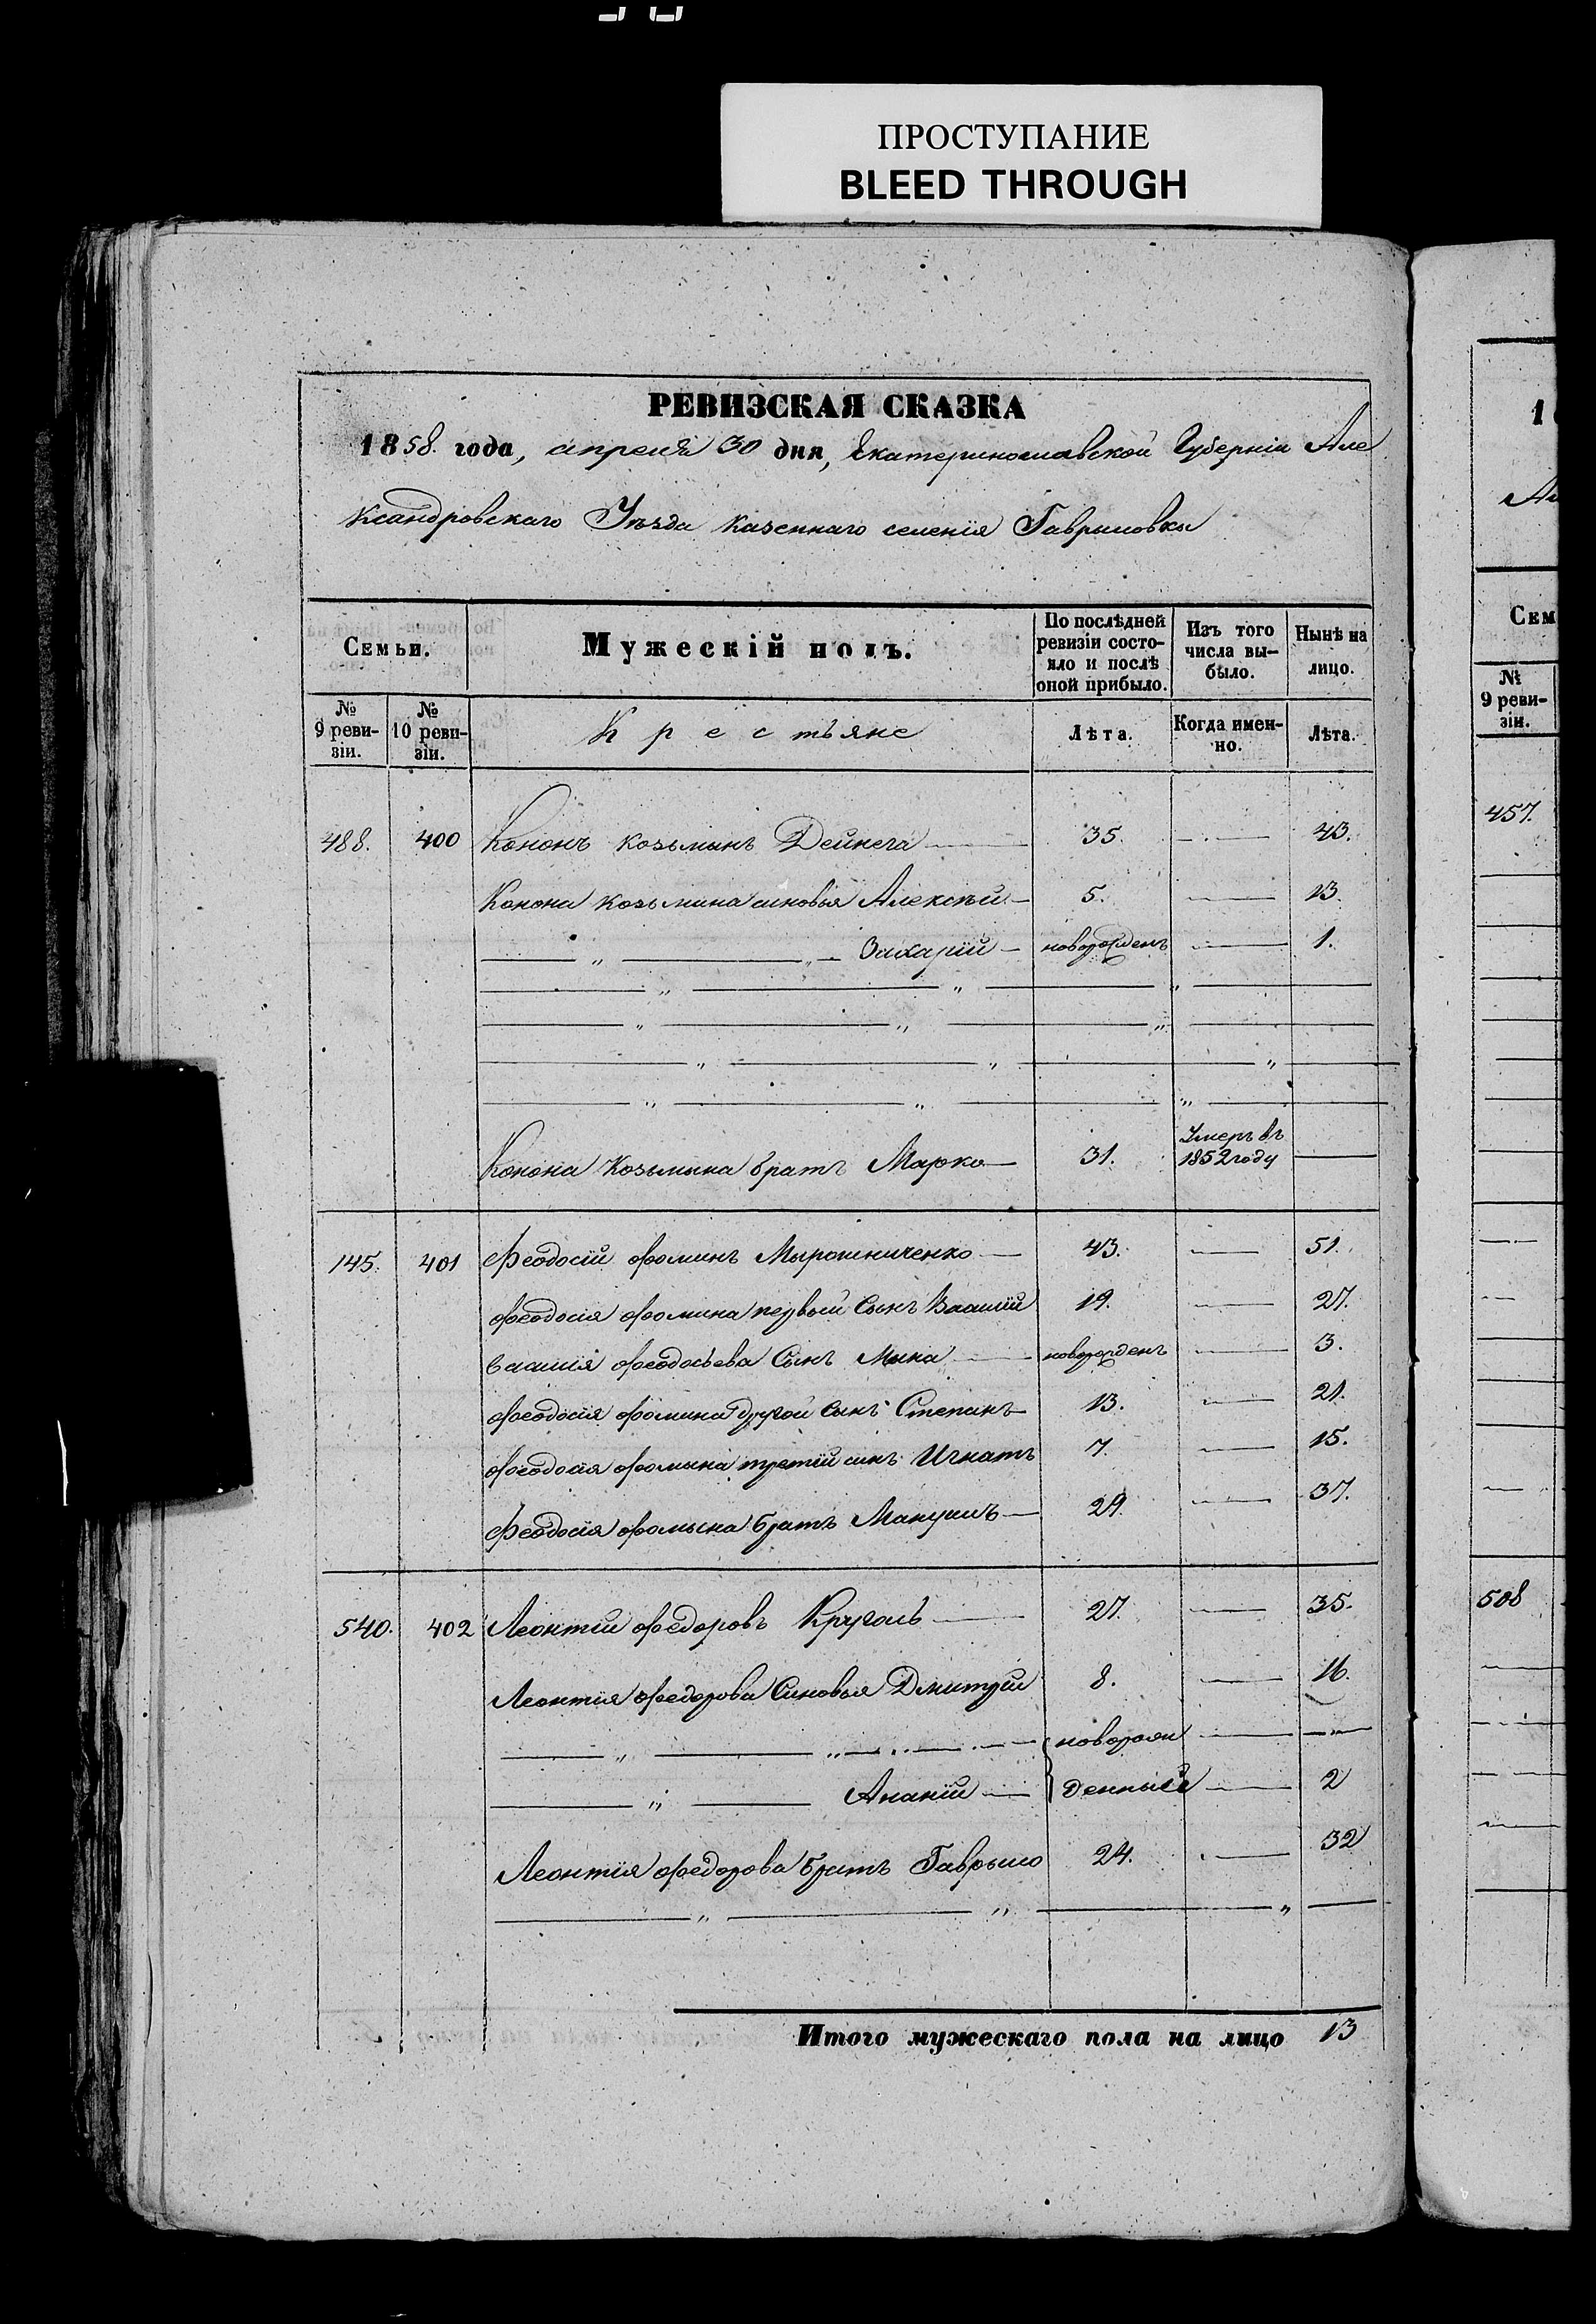 ПРОСТУПАНИЕ
BLEED THROUGH
РЕВИЗСКАЯ СКАЗКА
1858. года, апреля 30 дня, Екатеринославской Губерніи Але
ксандровскаго Уѣзда казеннаго селенія Гавриловки
Семьи. Мужескій полъ. По послѣдней ревизіи состояло и послѣ оной прибыло. Изъ того числа выбыло. Нынѣ на лицо.
№ 9 ревизіи. № 10 ревизіи. Крестьяне Лѣта. Когда именно. Лѣта.
488. 400 Кононъ Козьминъ Дейнега 35. 43.
Конона Козьмина синовья Алексѣй 5. 13.
" " Захарій новорожденъ 1.
Конона Козьмына братъ Марко 31. Умеръ въ 1852 году
145. 401 Феодосій Фоминъ Мырошниченко 43. 51.
Феодосія Фомина первый Сынъ Василій 19. 27.
Василія Феодосьева Сынъ Мина новорожденъ 3.
Феодосія Фомина другой Сынъ Степанъ 13. 21.
Феодосія Фомына третій синъ Игнатъ 7. 15.
Феодосія Фомына братъ Мануилъ 29. 37.
540. 402 Леонтій Федоровъ Круголь 27. 35.
Леонтія Федорова Синовья Дмитрій 8. 16.
" " новорож
" Ананій денныйе 2
Леонтія Федорова братъ Гаврыло 24. 32
Итого мужескаго пола на лицо 13
Сем
№ 9 ревизіи.
457.
508